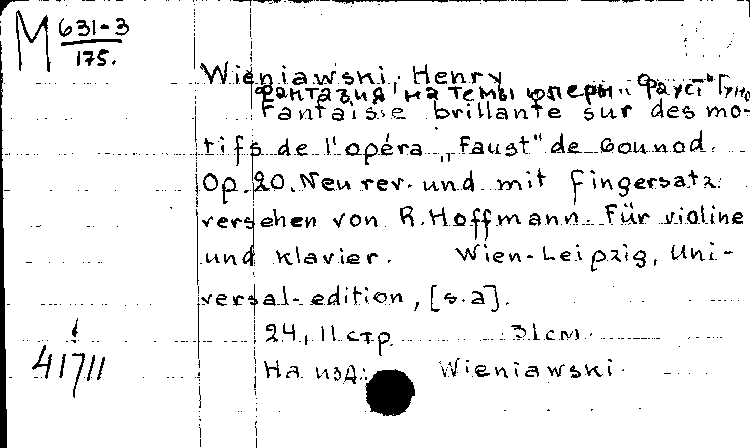 М 631-3
175.
Wieniawski, Henry
Фантазия на темы оперы „Фауст" Гуно
Fantaisie brillante sur des mo-
tifs de l'opéra „Faust" de Gounod.
Op. 20. Neu rev. und mit Fingersatz
versehen von R. Hoffmann. Für violine
und Klavier. Wien-Leipzig, Uni-
versal-edition, [s.a].
24, 11 стр 31 см.
41711
На изд: Wieniawski.